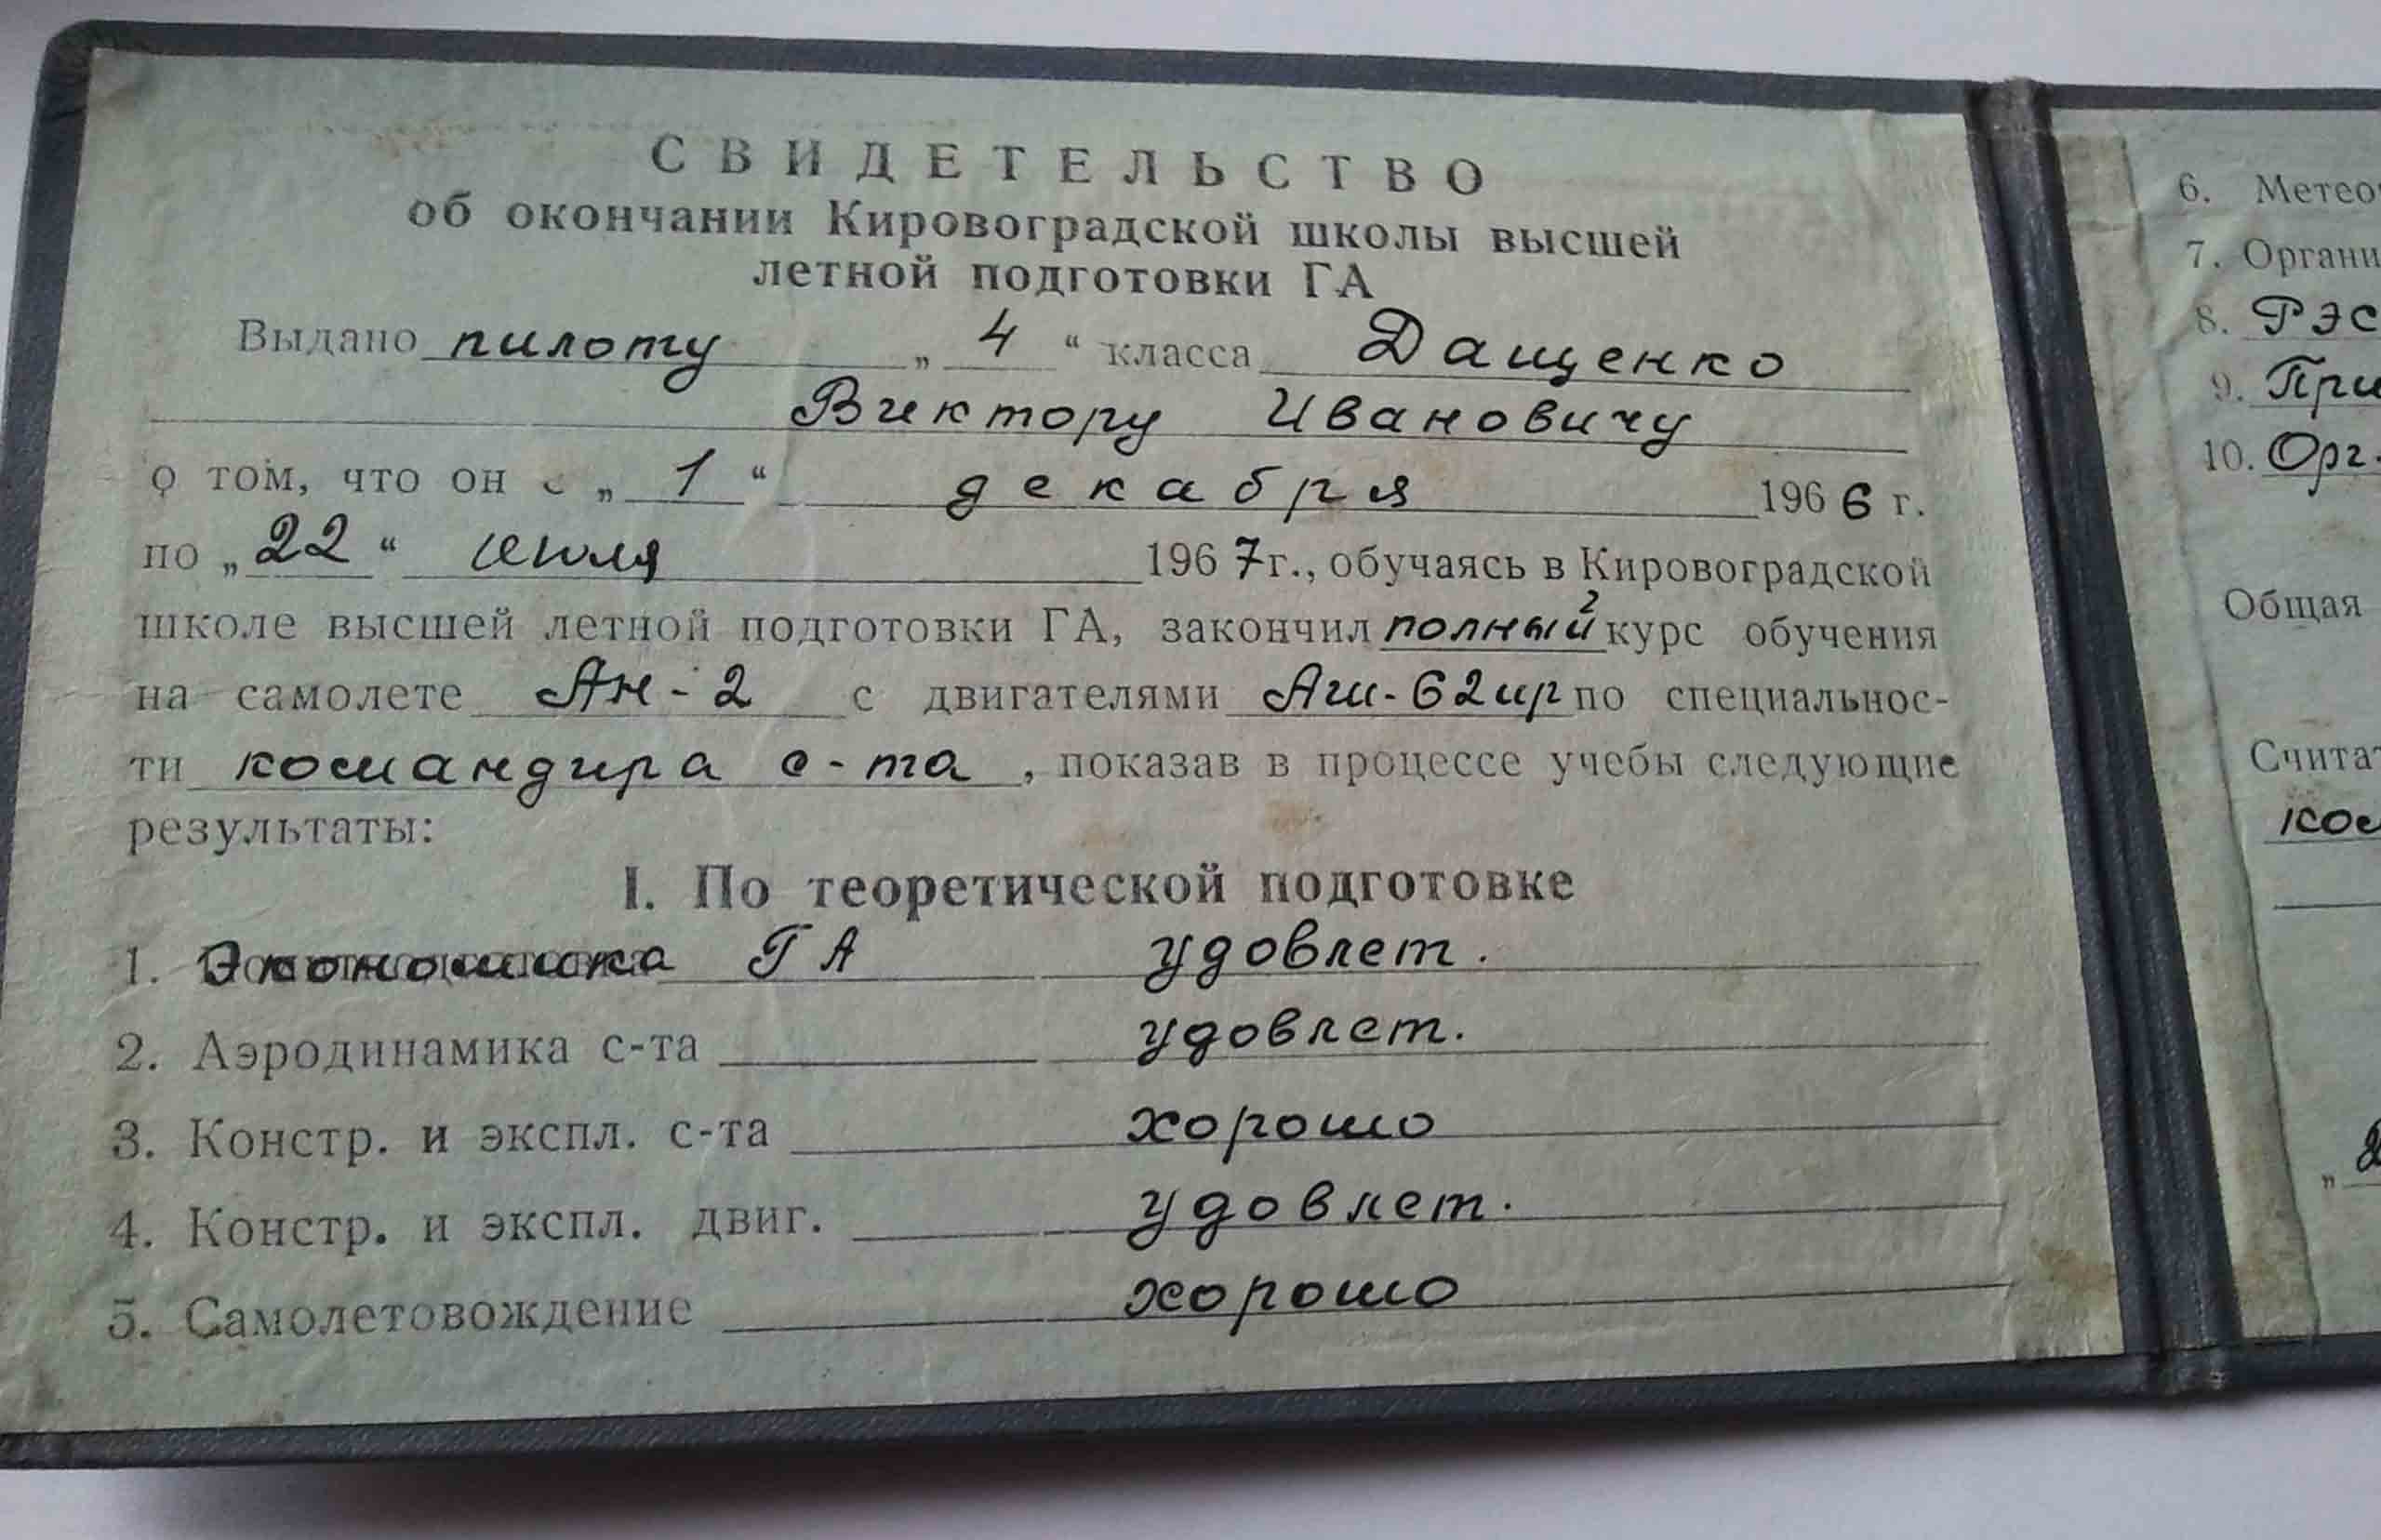 СВИДЕТЕЛЬСТВО
об окончании Кировоградской школы высшей
летной подготовки ГА
Выдано пилоту „ 4 “ класса Дащенко
Виктору Ивановичу
о том, что он с „ 1 “ декабря 1966 г.
по „ 22 “ июля 1967 г., обучаясь в Кировоградской
школе высшей летной подготовки ГА, закончил полный курс обучения
на самолете Ан-2 с двигателями Аш-62ир по специальнос-
ти командира с-та, показав в процессе учебы следующие
результаты:
I. По теоретической подготовке
1. Экономика ГА удовлет.
2. Аэродинамика с-та удовлет.
3. Констр. и экспл. с-та хорошо
4. Констр. и экспл. двиг. удовлет.
5. Самолетовождение хорошо
6. Метео
7. Органи
8. РЭС
9. При
10. Орг.
Общая
Счита
ком
„ 2